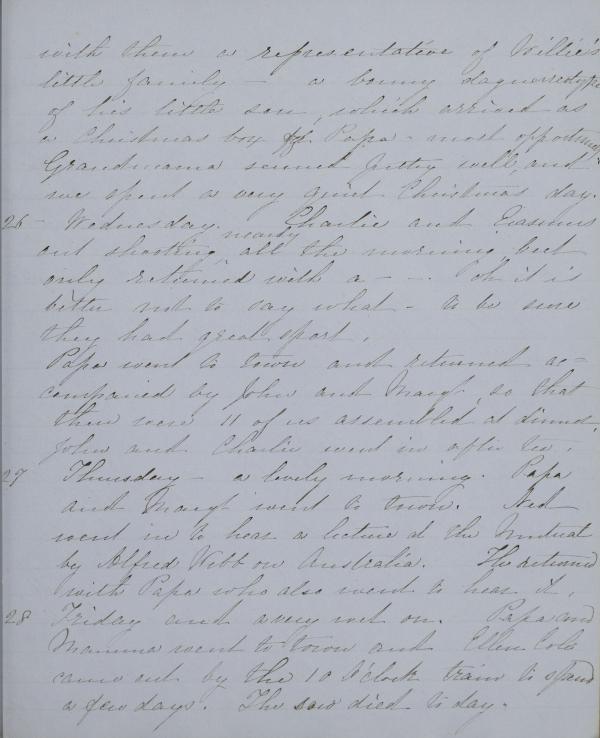 with them a representative of Willie's
little family - a bonny daguerreotype
of his little son, which arrived as
a Christmas box for Papa - most opportunely
Grandmama seemed pretty well, and
we spent a very quiet Christmas day.
26 - Wednesday. Charlie and Erasmus
out shooting nearly all the morning but
only returned with a - - . Oh it is
better not to say what - to be sure
they had great sport.
Papa went to town and returned ac-
companied by John and Margt, so that
there were 11 of us assembled at dinner,
John and Charlie went in after tea.
27 Thursday - a lovely morning. Papa
and Margt went to town. Ned
went in to hear a lecture at the Mutual
by Alfred Webb on Australia. He returned
with Papa who also went to hear it.
28 Friday and a very wet on. Papa and
Mamma went to town and Ellen
came out by the 10 O'clock train to spend
a few days. The sow died to day.